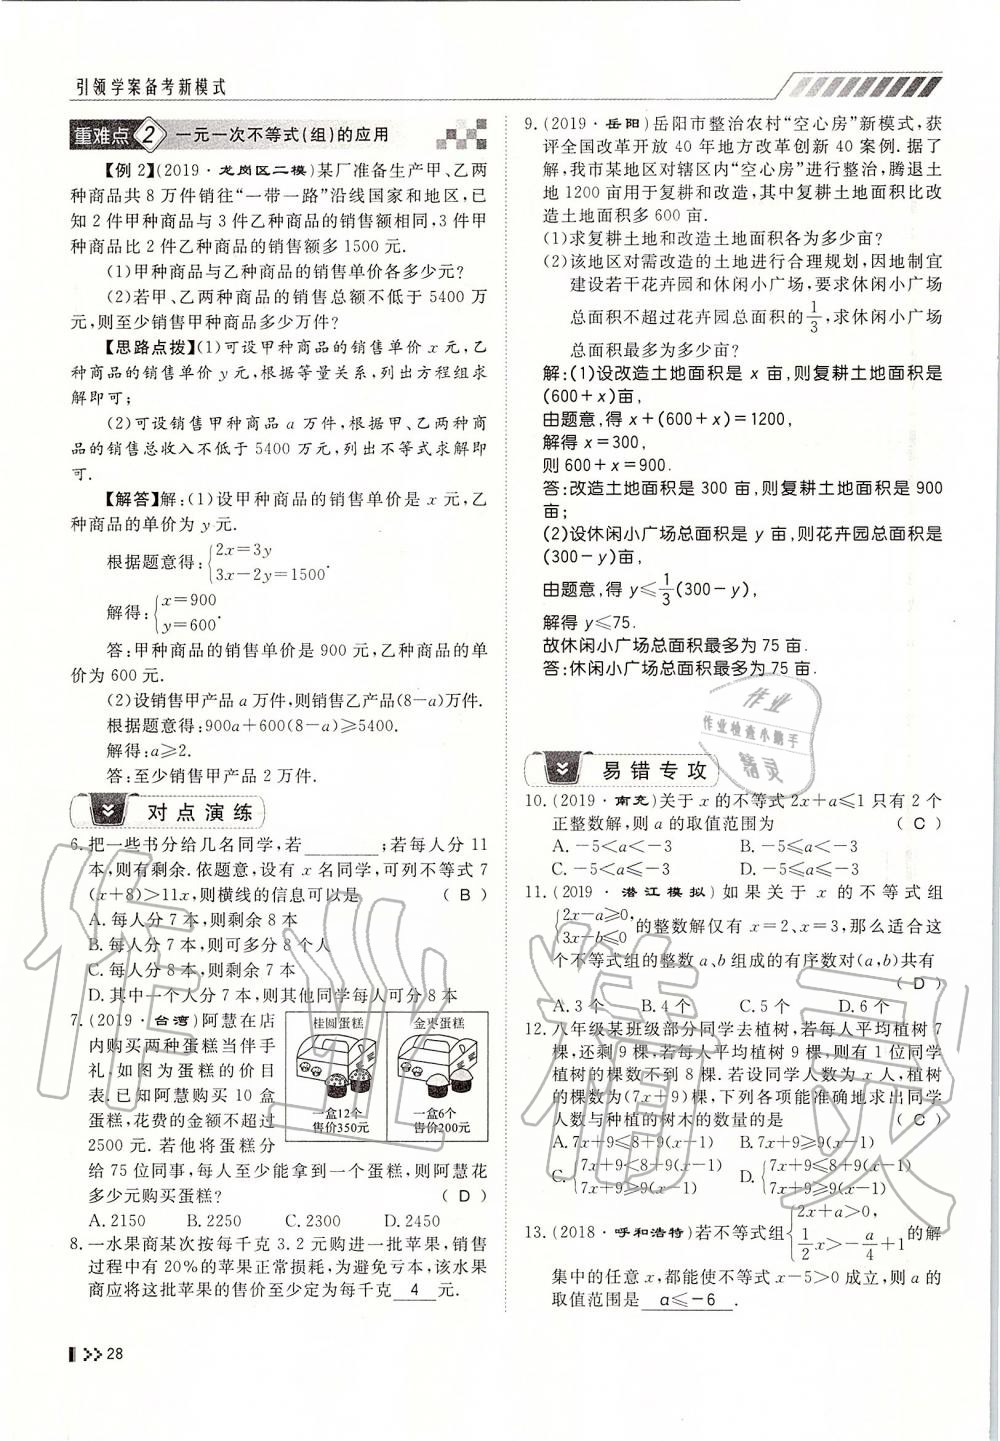 引领学案备考新模式
重难点 2 一元一次不等式(组)的应用
【例2】(2019·龙岗区二模)某厂准备生产甲、乙两
种商品共8万件销往“一带一路”沿线国家和地区,已
知2件甲种商品与3件乙种商品的销售额相同,3件甲
种商品比2件乙种商品的销售额多1500元.
(1)甲种商品与乙种商品的销售单价各多少元?
(2)若甲、乙两种商品的销售总额不低于5400万
元,则至少销售甲种商品多少万件?
【思路点拨】(1)可设甲种商品的销售单价x元,乙
种商品的销售单价y元,根据等量关系,列出方程组求
解即可;
(2)可设销售甲种商品a万件,根据甲、乙两种商
品的销售总收入不低于5400万元,列出不等式求解即
可.
【解答】解:(1)设甲种商品的销售单价是x元,乙
种商品的单价为y元.
根据题意得:{2x=3y
3x-2y=1500.
解得:{x=900
y=600.
答:甲种商品的销售单价是900元,乙种商品的单
价为600元.
(2)设销售甲产品a万件,则销售乙产品(8-a)万件.
根据题意得:900a+600(8-a)⩾5400.
解得:a⩾2.
答:至少销售甲产品2万件.
对点演练
6.把一些书分给几名同学,若________;若每人分11
本,则有剩余.依题意,设有x名同学,可列不等式7
(x+8)>11x,则横线的信息可以是 ( B )
A.每人分7本,则剩余8本
B.每人分7本,则可多分8个人
C.每人分8本,则剩余7本
D.其中一个人分7本,则其他同学每人可分8本
7.(2019·台湾)阿慧在店
内购买两种蛋糕当伴手
礼,如图为蛋糕的价目
表.已知阿慧购买10盒
蛋糕,花费的金额不超过
2500元.若他将蛋糕分
给75位同事,每人至少能拿到一个蛋糕,则阿慧花
多少元购买蛋糕? ( D )
桂圆蛋糕 金枣蛋糕
一盒12个 一盒6个
售价350元 售价200元
A.2150 B.2250 C.2300 D.2450
8.一水果商某次按每千克3.2元购进一批苹果,销售
过程中有20%的苹果正常损耗,为避免亏本,该水果
商应将这批苹果的售价至少定为每千克 4 元.
28
9.(2019·岳阳)岳阳市整治农村“空心房”新模式,获
评全国改革开放40年地方改革创新40案例.据了
解,我市某地区对辖区内“空心房”进行整治,腾退土
地1200亩用于复耕和改造,其中复耕土地面积比改
造土地面积多600亩.
(1)求复耕土地和改造土地面积各为多少亩?
(2)该地区对需改造的土地进行合理规划,因地制宜
建设若干花卉园和休闲小广场,要求休闲小广场
总面积不超过花卉园总面积的1/3,求休闲小广场
总面积最多为多少亩?
解:(1)设改造土地面积是x亩,则复耕土地面积是
(600+x)亩,
由题意,得x+(600+x)=1200,
解得x=300,
则600+x=900.
答:改造土地面积是300亩,则复耕土地面积是900
亩;
(2)设休闲小广场总面积是y亩,则花卉园总面积是
(300-y)亩,
由题意,得y⩽1/3(300-y),
解得y⩽75.
故休闲小广场总面积最多为75亩.
答:休闲小广场总面积最多为75亩.
易错专攻
10.(2019·南充)关于x的不等式2x+a⩽1只有2个
正整数解,则a的取值范围为 ( C )
A.-5<a<-3 B.-5⩽a<-3
C.-5<a⩽-3 D.-5⩽a⩽-3
11.(2019·潜江模拟)如果关于x的不等式组
{2x-a⩾0,
3x-b⩽0的整数解仅有x=2、x=3,那么适合这
个不等式组的整数a、b组成的有序数对(a,b)共有
( D )
A.3个 B.4个 C.5个 D.6个
12.八年级某班级部分同学去植树,若每人平均植树7
棵,还剩9棵,若每人平均植树9棵,则有1位同学
植树的棵数不到8棵.若设同学人数为x人,植树
的棵数为(7x+9)棵,下列各项能准确地求出同学
人数与种植的树木的数量的是 ( C )
A.7x+9⩽8+9(x-1) B.7x+9⩾9(x-1)
C.{7x+9<8+9(x-1)
7x+9⩾9(x-1) D.{7x+9⩽8+9(x-1)
7x+9⩾9(x-1)
13.(2018·呼和浩特)若不等式组{2x+a>0,
1/2x>-a/4+1的解
集中的任意x,都能使不等式x-5>0成立,则a的
取值范围是 a⩽-6 .
作业
作业检查小助手
精灵
作业精灵